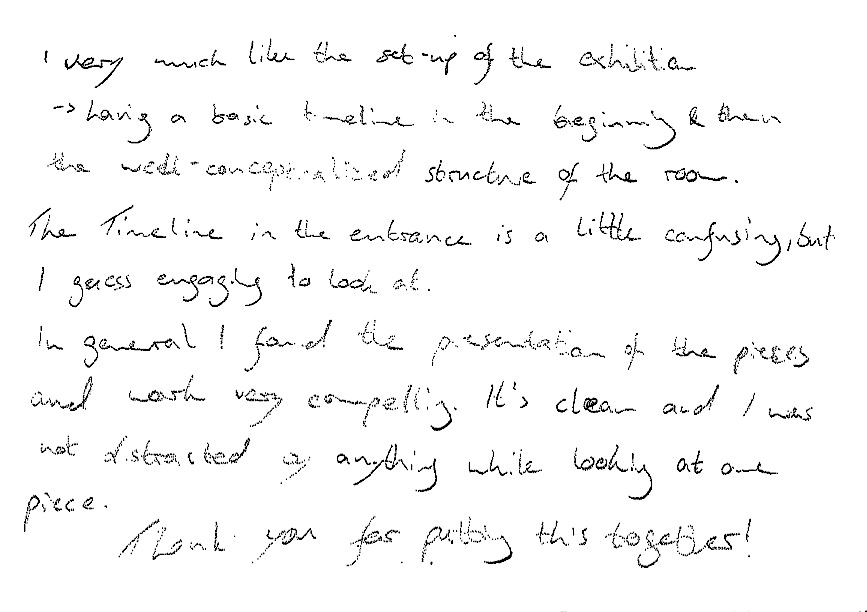 I very much like the set-up of the exhibition
-> having a basic timeline in the beginning & then
the well-conceptualized structure of the room.
The Timeline in the entrance is a little confusing, but
I guess engaging to look at.
In general I found the presentation of the pieces
and work very compelling. It's clean and I was
not distracted by anything while looking at one
piece.
Thank you for putting this together!